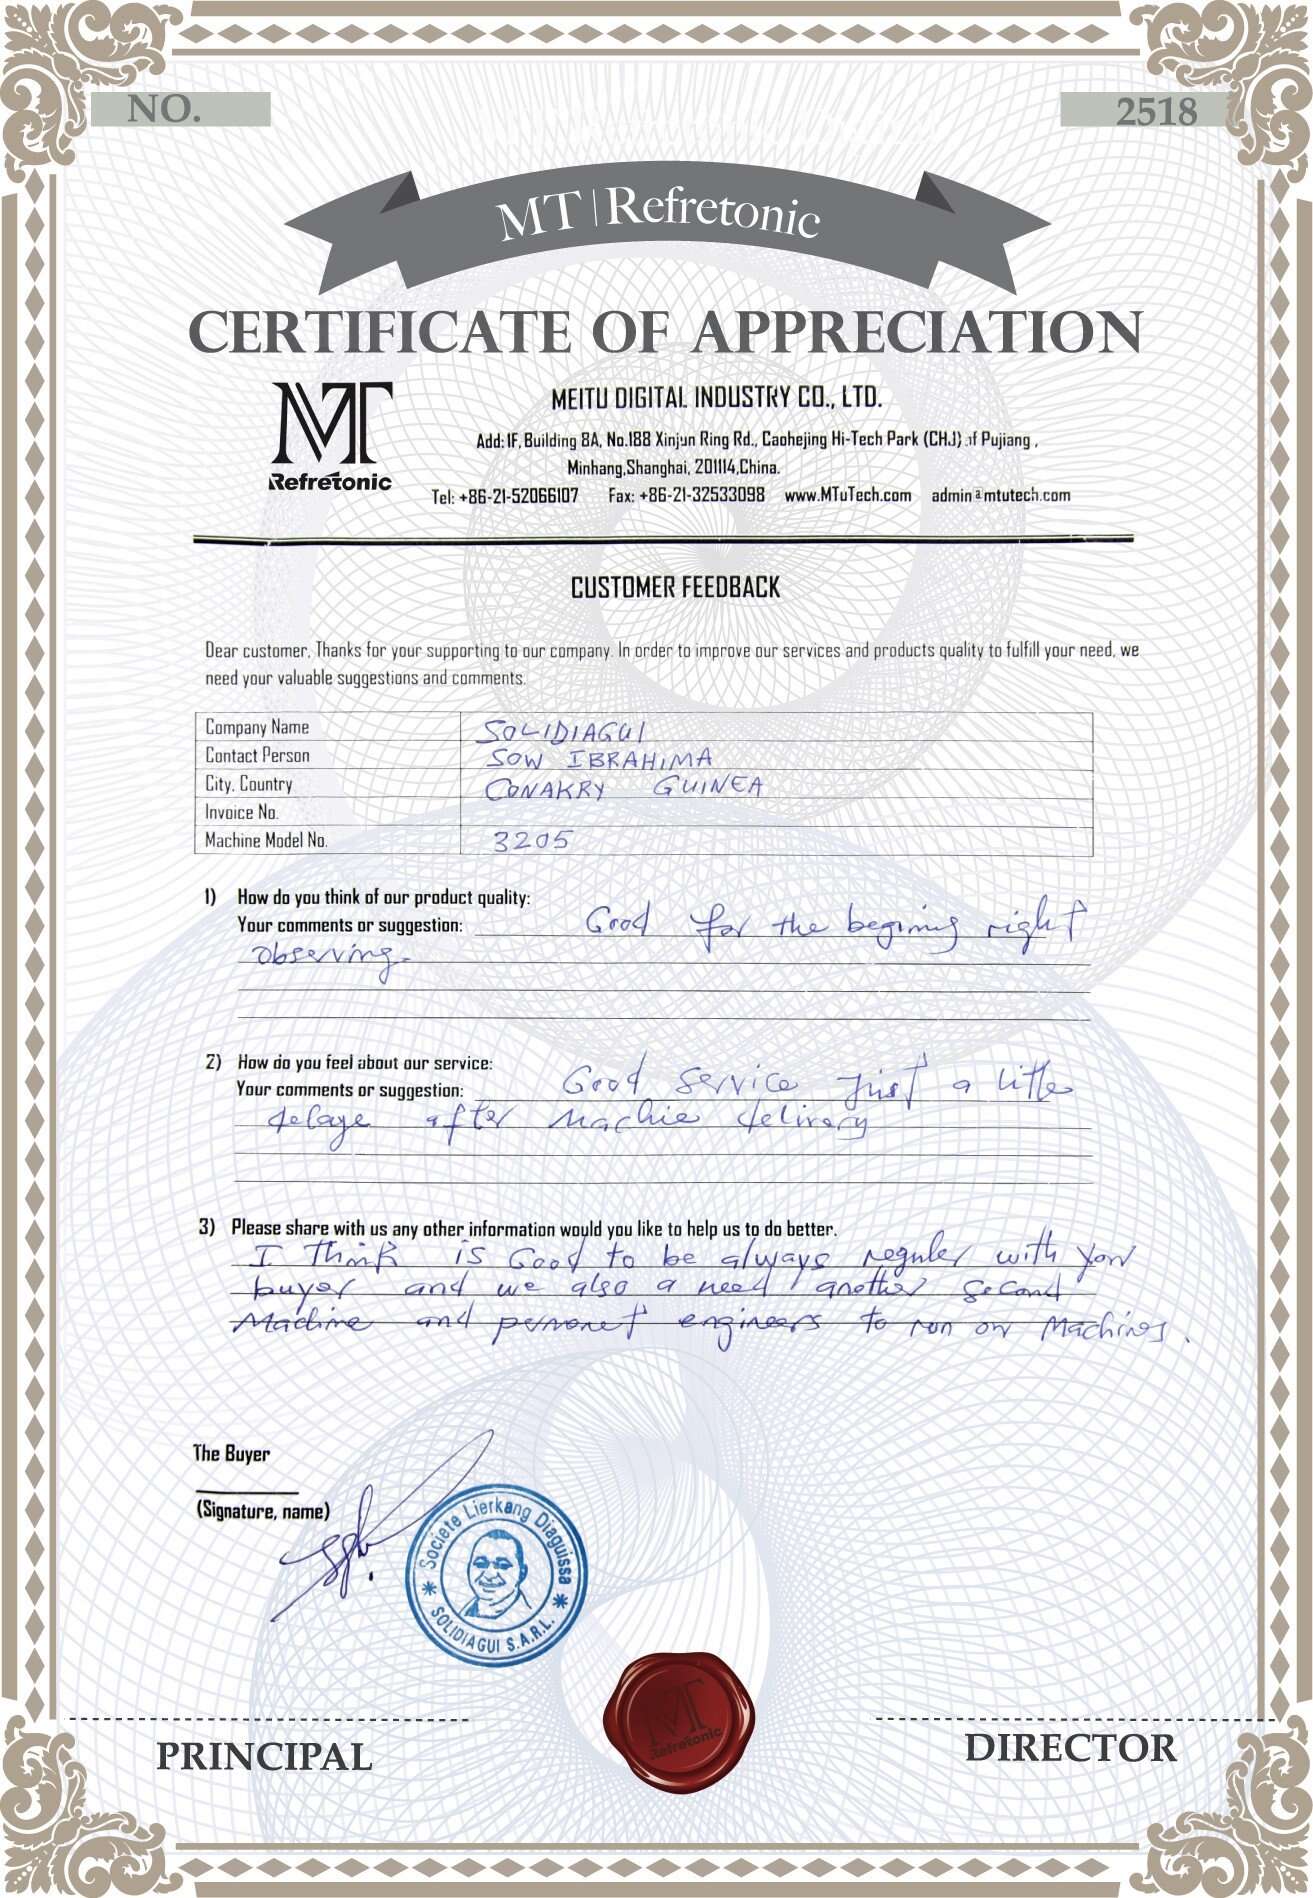 NO.
2518
MT | Refretonic
CERTIFICATE OF APPRECIATION
MT
Refretonic
MEITU DIGITAL INDUSTRY CO., LTD.
Add: 1F, Building 8A, No.188 Xinjun Ring Rd., Caohejing Hi-Tech Park (CHJ) of Pujiang ,
Minhang,Shanghai, 201114,China.
Tel: +86-21-52066107 Fax: +86-21-32533098 www.MTuTech.com admin@mtutech.com
CUSTOMER FEEDBACK
Dear customer, Thanks for your supporting to our company. In order to improve our services and products quality to fulfill your need, we
need your valuable suggestions and comments.
Company Name SOLIDIAGUI
Contact Person SOW IBRAHIMA
City, Country CONAKRY GUINEA
Invoice No.
Machine Model No. 3205
1) How do you think of our product quality:
Your comments or suggestion: Good for the begining right
observing.
2) How do you feel about our service:
Your comments or suggestion: Good service just a little
delaye after Machie delivery
3) Please share with us any other information would you like to help us to do better.
I think is Good to be always reguler with your
buyer and we also a need another second
Machine and permonet engineers to run our Machines.
The Buyer
(Signature, name)
Societe Lierkang Diaguissa
SOLIDIAGUI S.A.R.L.
MT
Refretonic
PRINCIPAL
DIRECTOR